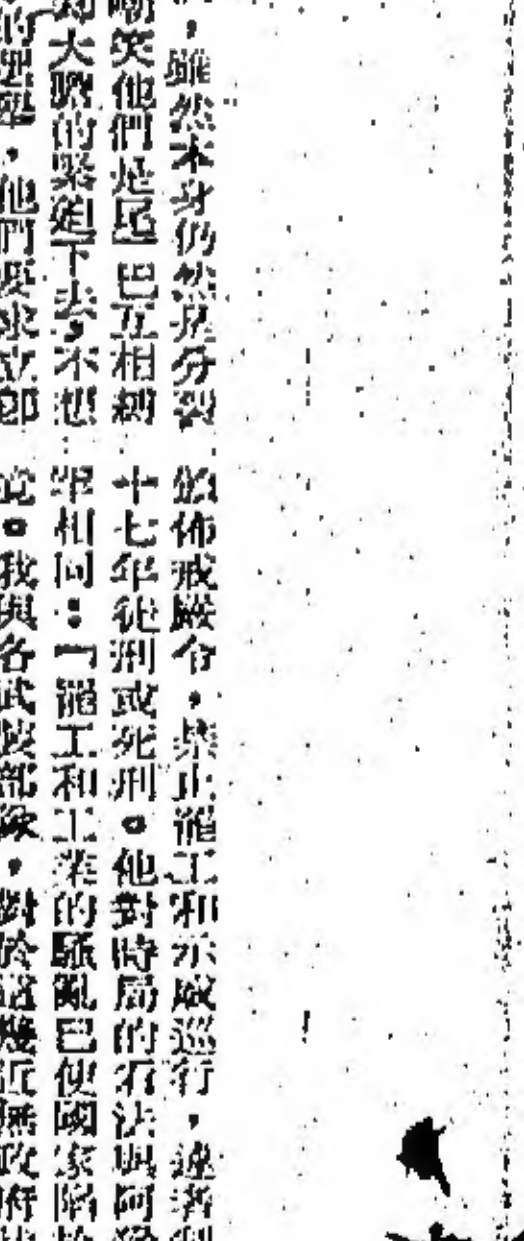 ，雖然本身仍然是分裂
嘲笑他們是尾巴互相綁
大膽的緊迫下去，不想
的選舉，他們要求立即
頒佈戒嚴令，禁止罷工和示威巡行，違者判
十七年徒刑或死刑。他對時局的看法與阿
相同：「罷工和工業的騷亂已使國家陷於
。我與各武裝部隊，對於這幾近無政府狀